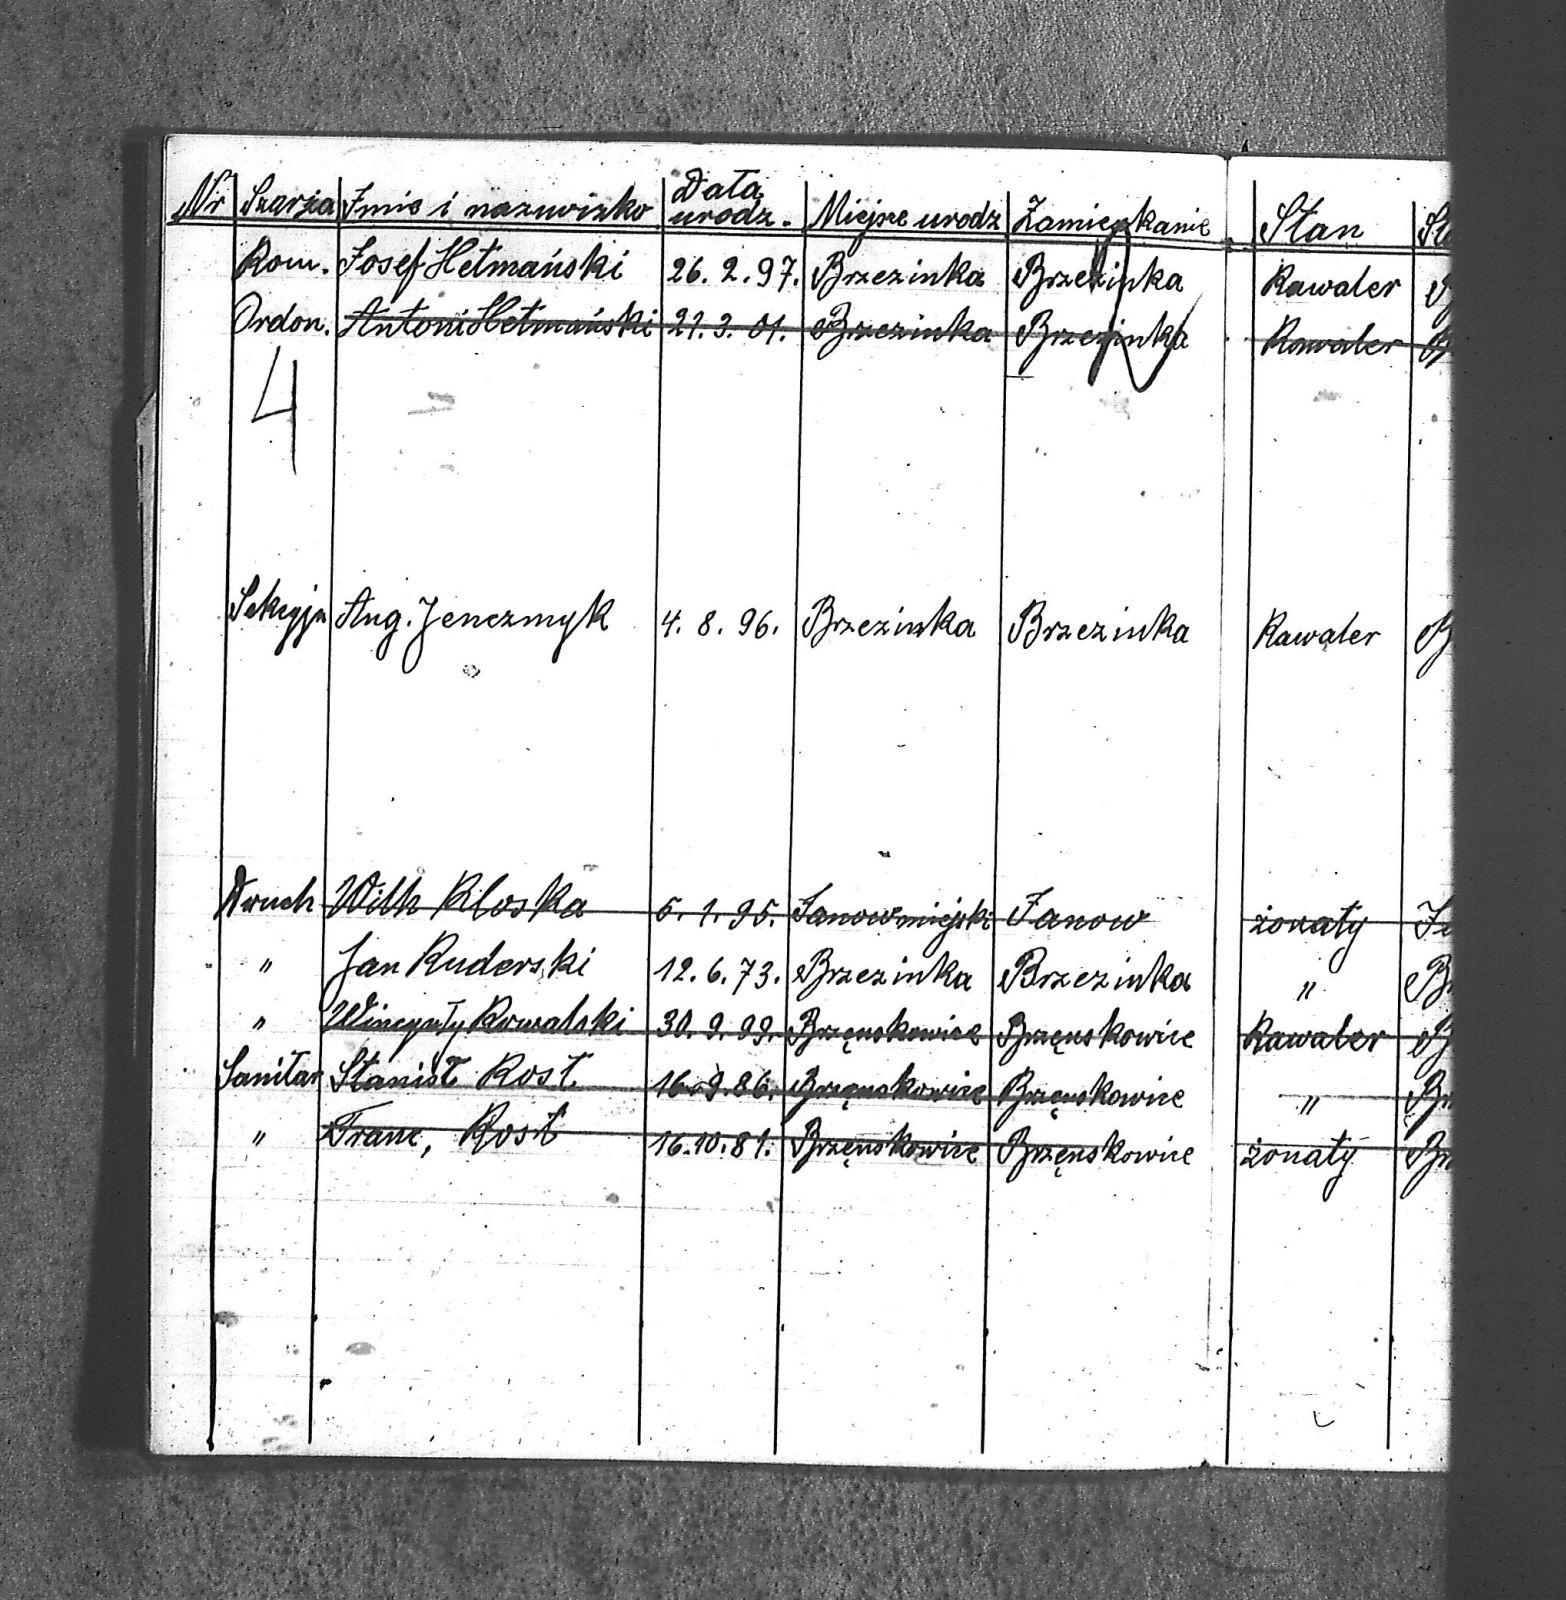 Nr Szarża Imie i nazwizko Data urodz. Miejsce urodz Zamieszkanie Stan
Kom. Josef Hetmański 26. 2. 97. Brzezinka Brzezinka Kawaler
Ordon. Antoni Hetmański 21. 3. 01. Brzezinka Brzezinka Kawaler
4
Sekcyja Aug. Jenczmyk 4. 8. 96. Brzezinka Brzezinka Kawaler B
Druch Wilh Kloska 5. 1. 95. Janow miejski Janow żonaty
" Jan Kuderski 12. 6. 73. Brzezinka Brzezinka " Br
" Wincynty Kowalski 30. 9. 99. Brzęnskowice Brzęnskowice Kawaler B
Sanitar Stanisł Kost 16. 9. 86. Brzęnskowice Brzęnskowice " Br
" Franc, Kost 16. 10. 81. Brzęnskowice Brzęnskowice żonaty Br